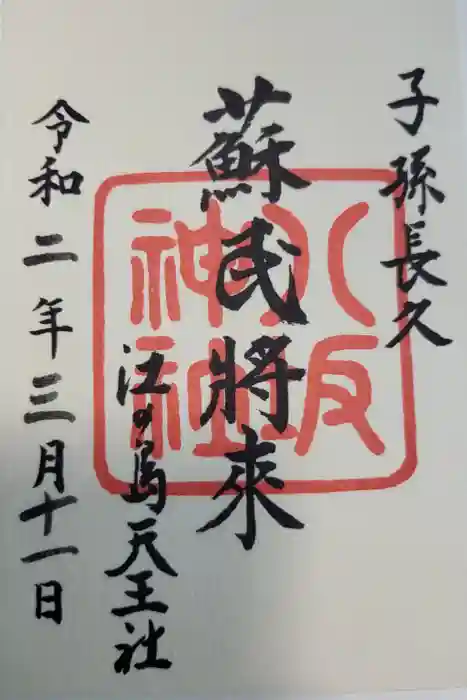 子孫長久
蘇民將來
八坂神社
江の島天王社
令和二年三月十一日